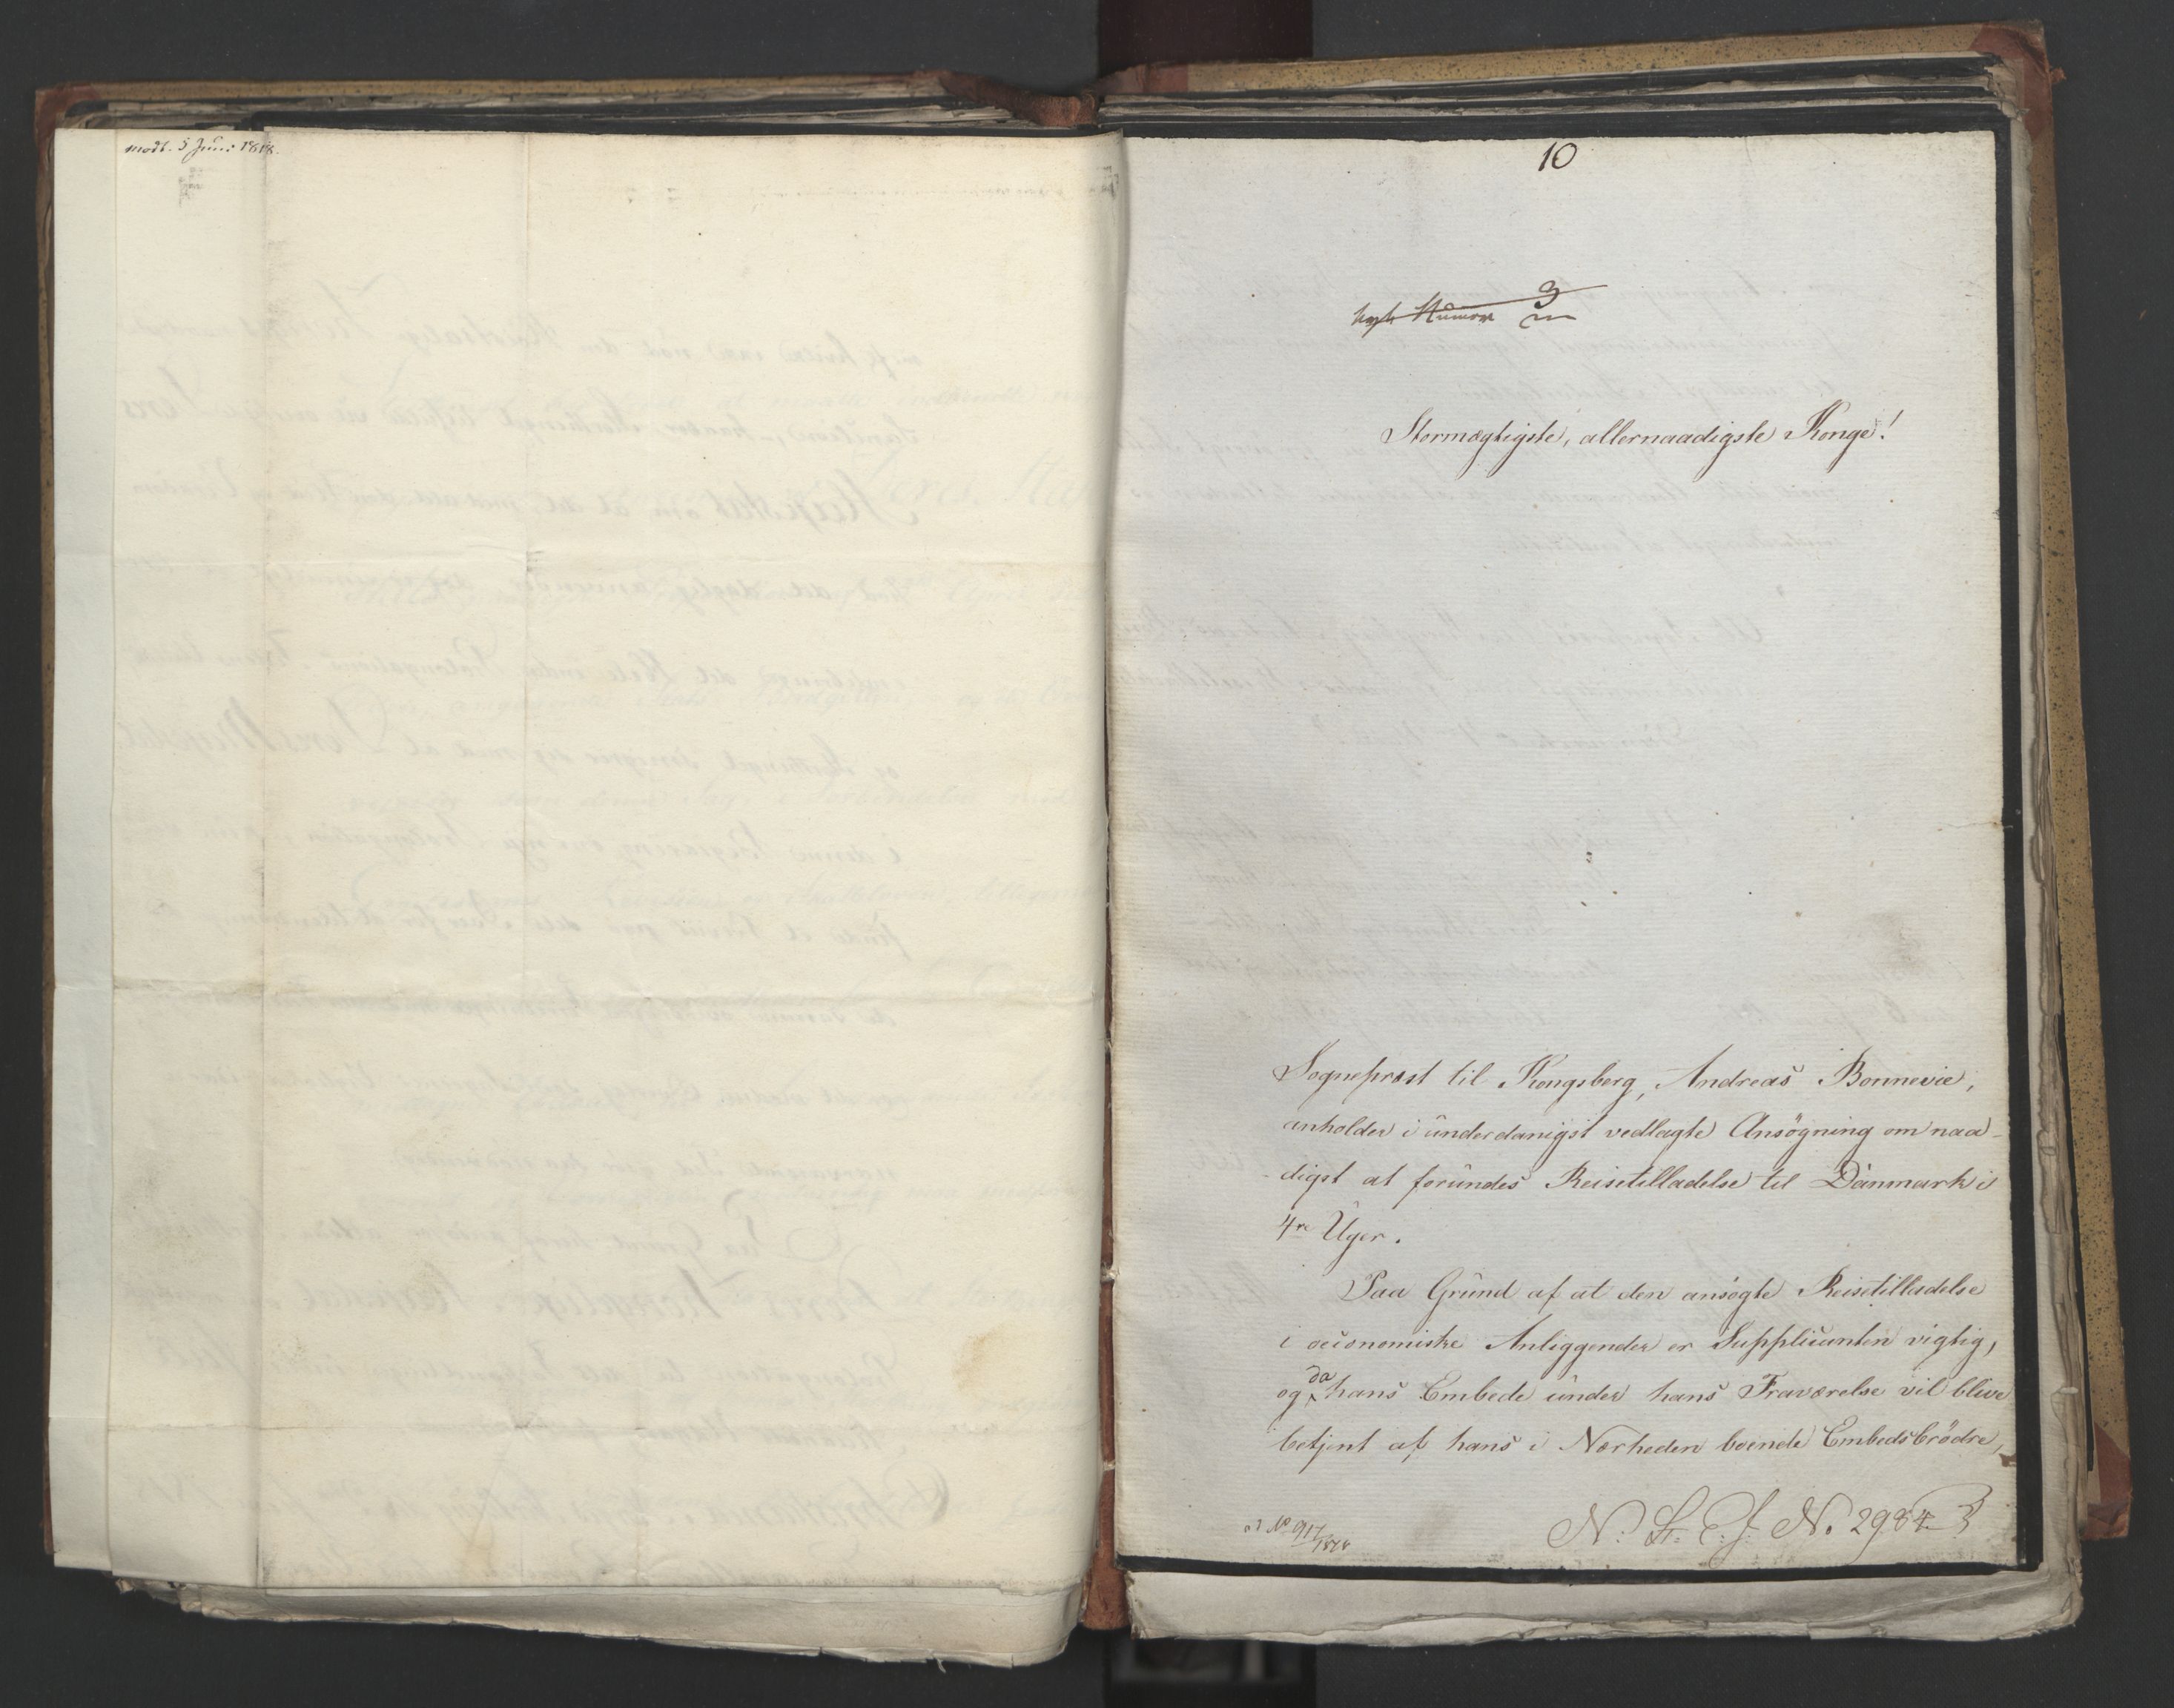 modt. 5 Juni 1818.
10
3
Stormægtigste, allernaadigste Konge!
Sognepræst til Kongsberg, Andreas Bonnevie,
anholder i ûnderdanigst vedlagte Ansögning om naa-
digst at forûndes Reisetilladelse til Danmark i
4re Uger.
Paa Grûnd af at den ansögte Reisetilladelse
i oeconomiske Anliggender er Supplicanten vigtig,
og da hans Embede ûnder hans Fraværelse vil blive
betjent af hans i Nærheden boende Embedsbrödre,
No 917/1818
N. St. E. J. No 2984